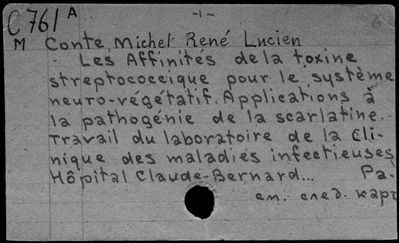 C 761 A
-1-
M Conte, Michel René Lucien
Les Affinités de la toxine
streptococcique pour le système
neuro-végétatif. Applications à
la pathogénie de la scarlatine.
Travail du laboratoire de la Cli-
nique des maladies infectieuses
Hôpital Claude-Bernard... Pa-
см. след. карт